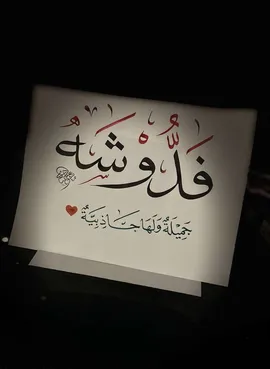 فَدُّوْشَهُ
جَمِيْلَةٌ وَلَهَا جَاذِبِيَّةٌ